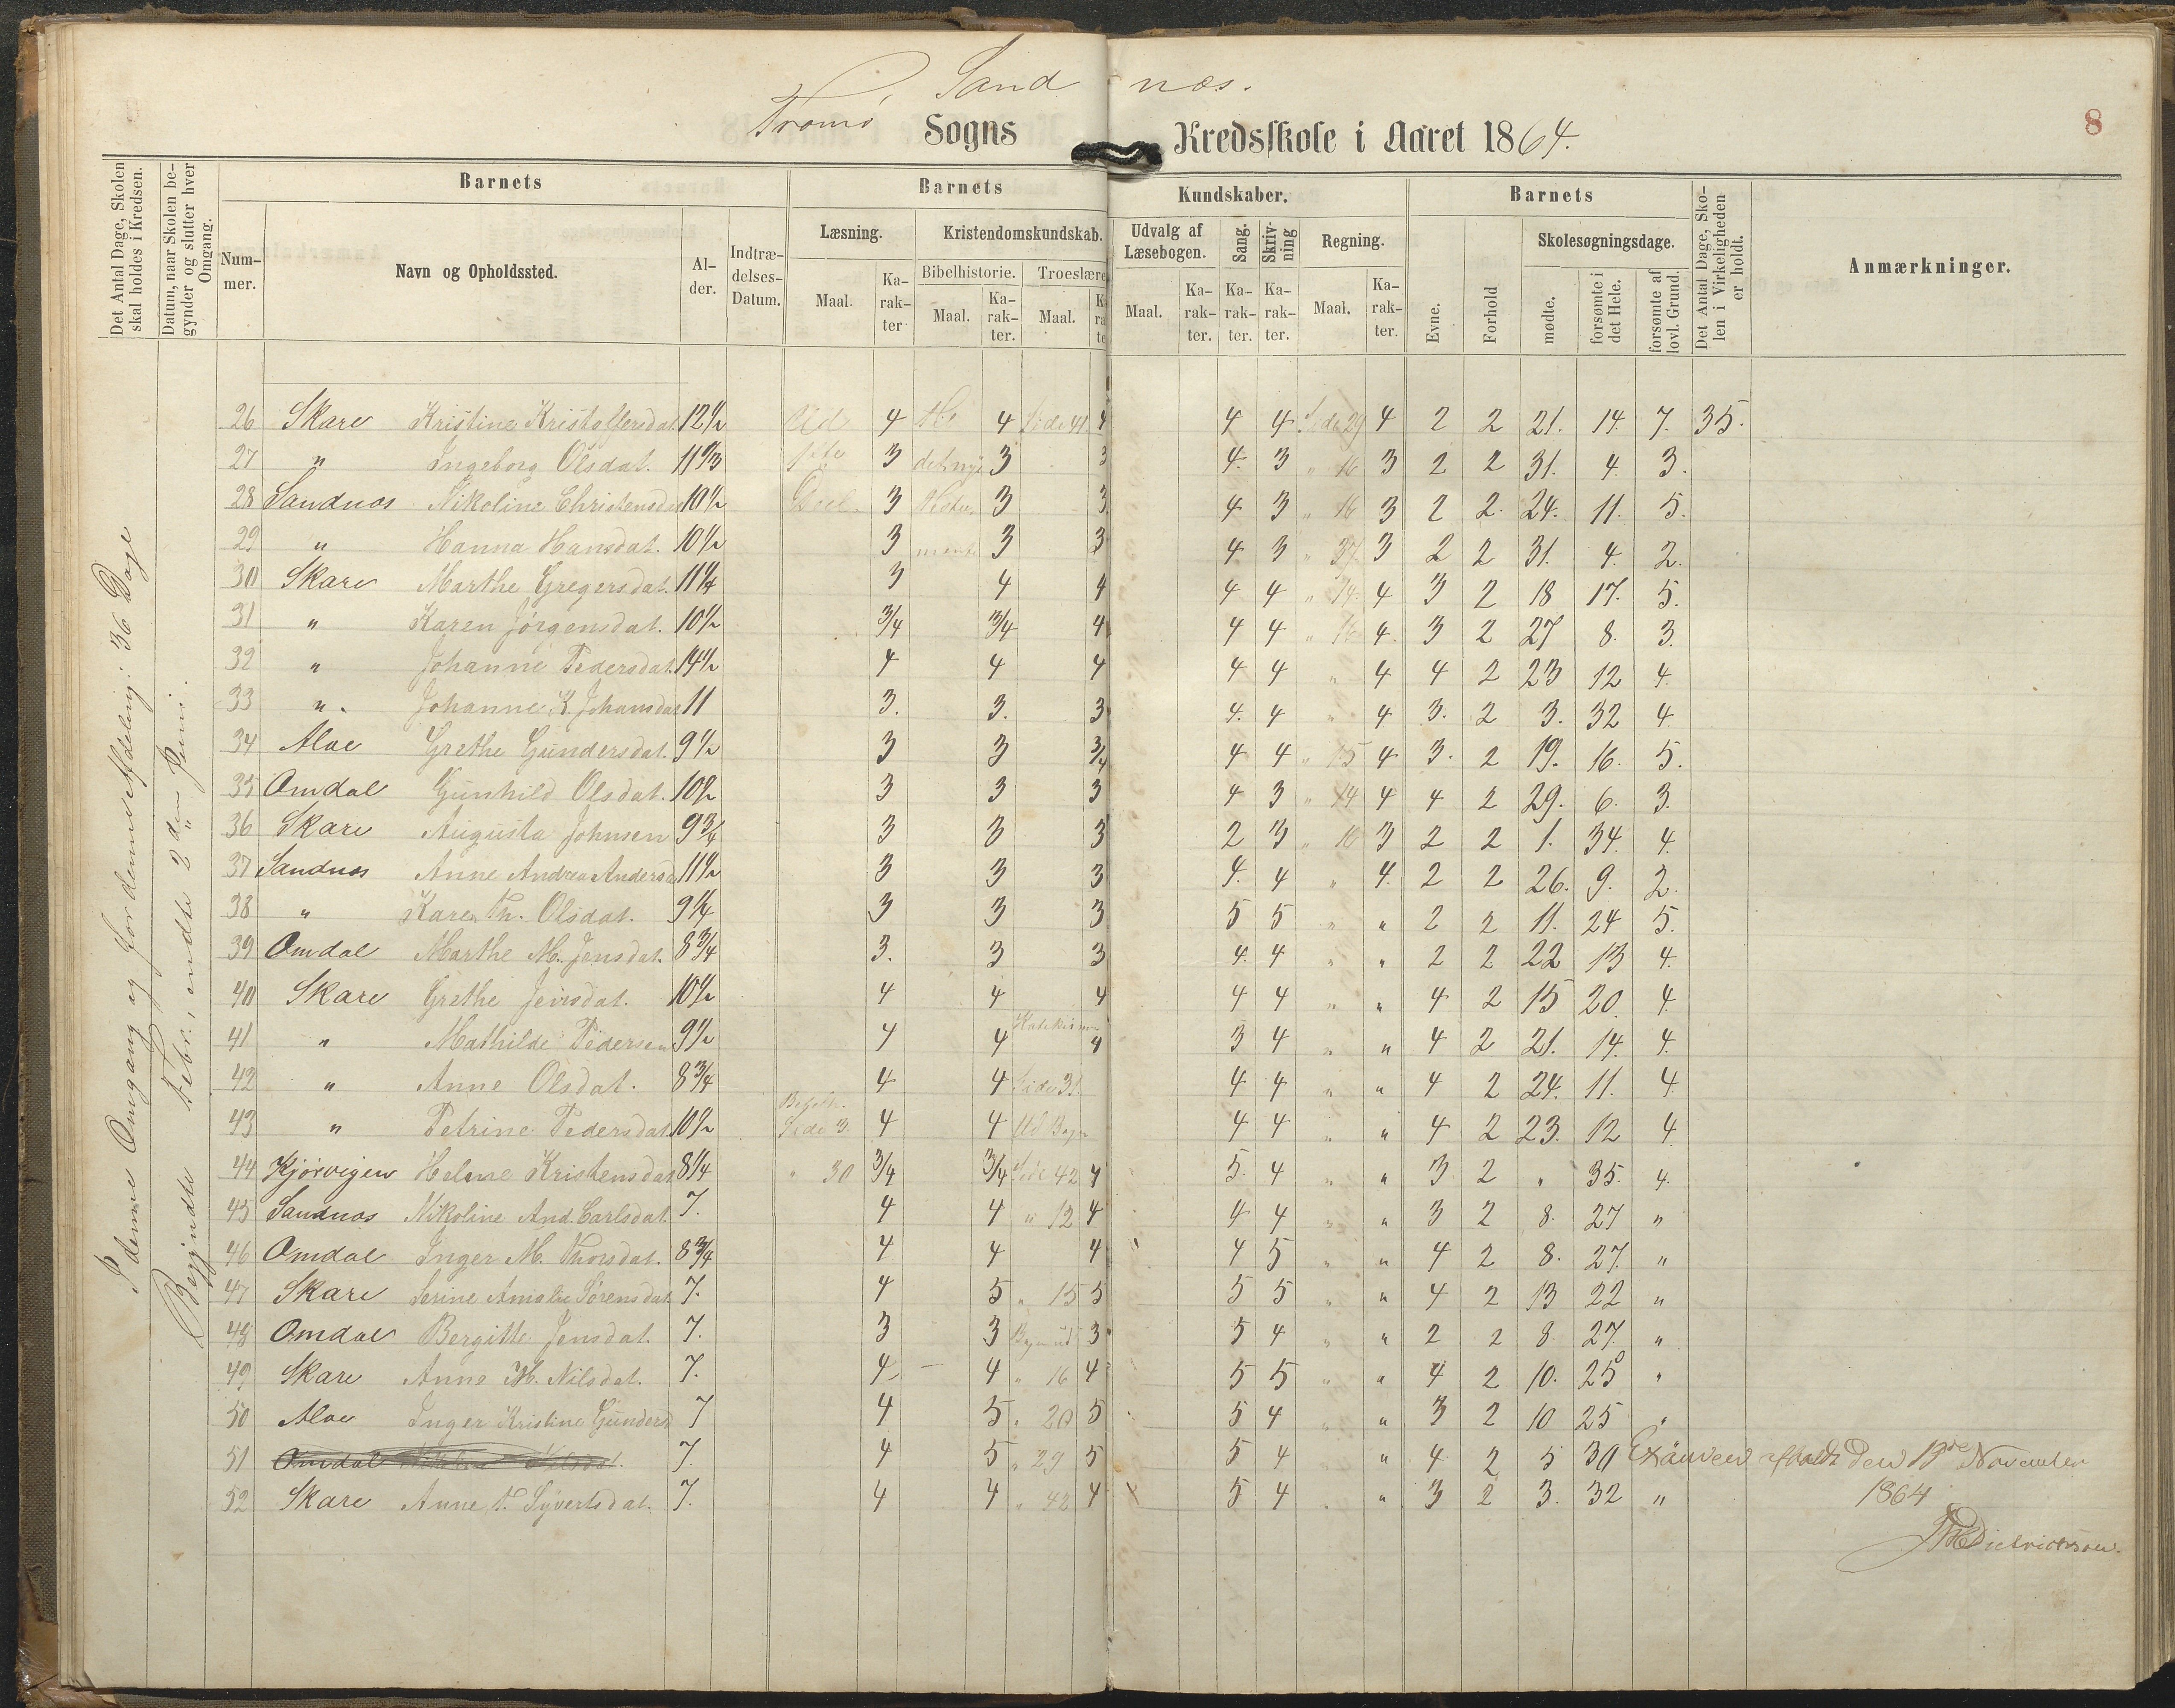 Sandnæs.
Tromø Sogns Kredsskole i Aaret 1864.
8
Det Antal Dage, Skolen skal holdes i Kredsen.
Datum, naar Skolen begynder og slutter hver Omgang.
Barnets
Barnets
Kundskaber.
Barnets
Det Antal Dage, Skolen i Virkeligheden er holdt.
Anmærkninger.
Nummer.
Navn og Opholdssted.
Alder.
Indtrædelses-Datum.
Læsning.
Kristendomskundskab.
Udvalg af Læsebogen.
Sang.
Skrivning
Regning.
Evne.
Forhold
Skolesøgningsdage.
Bibelhistorie.
Troeslære
Maal.
Karakter
Maal.
Karakter.
Maal.
Maal.
Karakter.
Karakter.
Karakter.
Maal.
Karakter.
mødte.
forsømte i det Hele.
forsømte af lovl. Grund.
I denne Omgang og for denne Afdeling: 36 Dage
Begyndte Febr., endte 2den Juni.
26 Skare Kristine Kristoffersdat. 12½ Ud 4 4 Side 41 4 4 4 Side 29 4 2 2 21. 14. 7. 35.
27 " Ingeborg Olsdat. 11⅓ 3 det nye 3 3 4. 3 " 16 3 2 2 31. 4. 3.
28 Sandnæs Nikoline Christensdat 10½ Deel. 3 3 3. 4 3 " 16 3 2 2. 24. 11. 5.
29 " Hanna Hansdat. 10½ 3 mente 3 3 4 3 " 37. 3 2 2 31. 4. 2.
30 Skare Marthe Gregersdat. 11¼ 3 4 4 4 4 " 14. 4 3 2 18 17. 5.
31 " Karen Jørgensdat. 10½ 3/4 3/4 4 4 4 " 16 4. 3 2 27 8. 3.
32 " Johanne Pedersdat. 14½ 4 4 4 4 4 " 4 4 2 23 12 4.
33 " Johanne K. Johansdat 11 3. 3. 3 4. 4 " 4 3. 2 3. 32 4.
34 Aloe Grethe Gundersdat. 9½ 3 3 3/4 4 4 " 15 4 3. 2 19. 16. 5.
35 Omdal Gunhild Olsdat. 10½ 3 3 3 4 3 " 14 4 4 2 29. 6. 3.
36 Skare Augusta Johnsen 9¾ 3 3 3 2 3 " 16 3 2 2 1. 34. 4.
37 Sandnæs Anne Andrea Andersd 11½ 3 3 3 4. 4 " 4. 2 2 26. 9. 2.
38 " Karen Th. Olsdat. 9¼ 3 3 3 5 5 " " 2 2 11. 24 5.
39 Omdal Marthe M. Jensdat. 8¾ 3. 3 3 4. 4 " " 2 2 22 13 4.
40 Skare Grethe Jensdat. 10½ 4 4 4 4 4 " " 4 2 15 20. 4.
41 " Mathilde Pedersen 9½ 4 4 4 3 4 " " 4 2 21. 14. 4.
42 " Anne Olsdat. 8¾ 4 4 Side 31. 4 4 " " 4 2 24. 11. 4
43 " Petrine Pedersdat. 10½ Side 3 4 4 Ud Bogen 4 4 " " 4 2 23. 12 4.
44 Kjørvigen Helene Kristensdat 8¼ " 30 3/4 3/4 Side 42 4 5. 4 " " 3 2 " 35. 4.
45 Sandnæs Nikoline And. Carlsdat. 7. 4 4 " 12 4 4 4 " " 3 2 8. 27 "
46 Omdal Inger M. Thorsdat. 8¾ 4 4 4 4 5 " " 4 2 8. 27. "
47 Skare Serine Amalie Sørensdat 7. 4 5 " 15 5 5 5 " " 4 2 13 22 "
48 Omdal Bergitte Jensdat. 7. 3 3 Bogen ud 3 5 4 " " 2 2 8. 27. "
49 Skare Anne M. Nilsdat. 7. 4 4 " 16 4 5 5 " " 4 2 10. 25 "
50 Aloe Inger Kristine Gundersd 7 4 5 " 20 5 5 4 " " 3 2 10 25 "
51 Omdal 7. 4 5 " 29 5 5 4 " 4 2 5 30
52 Skare Anne T. Syvertsdat. 7. 4 4 " 42 4 5 4 " " 3 2 3. 32 "
Examen afholdt den November
1864
Diedrichson.